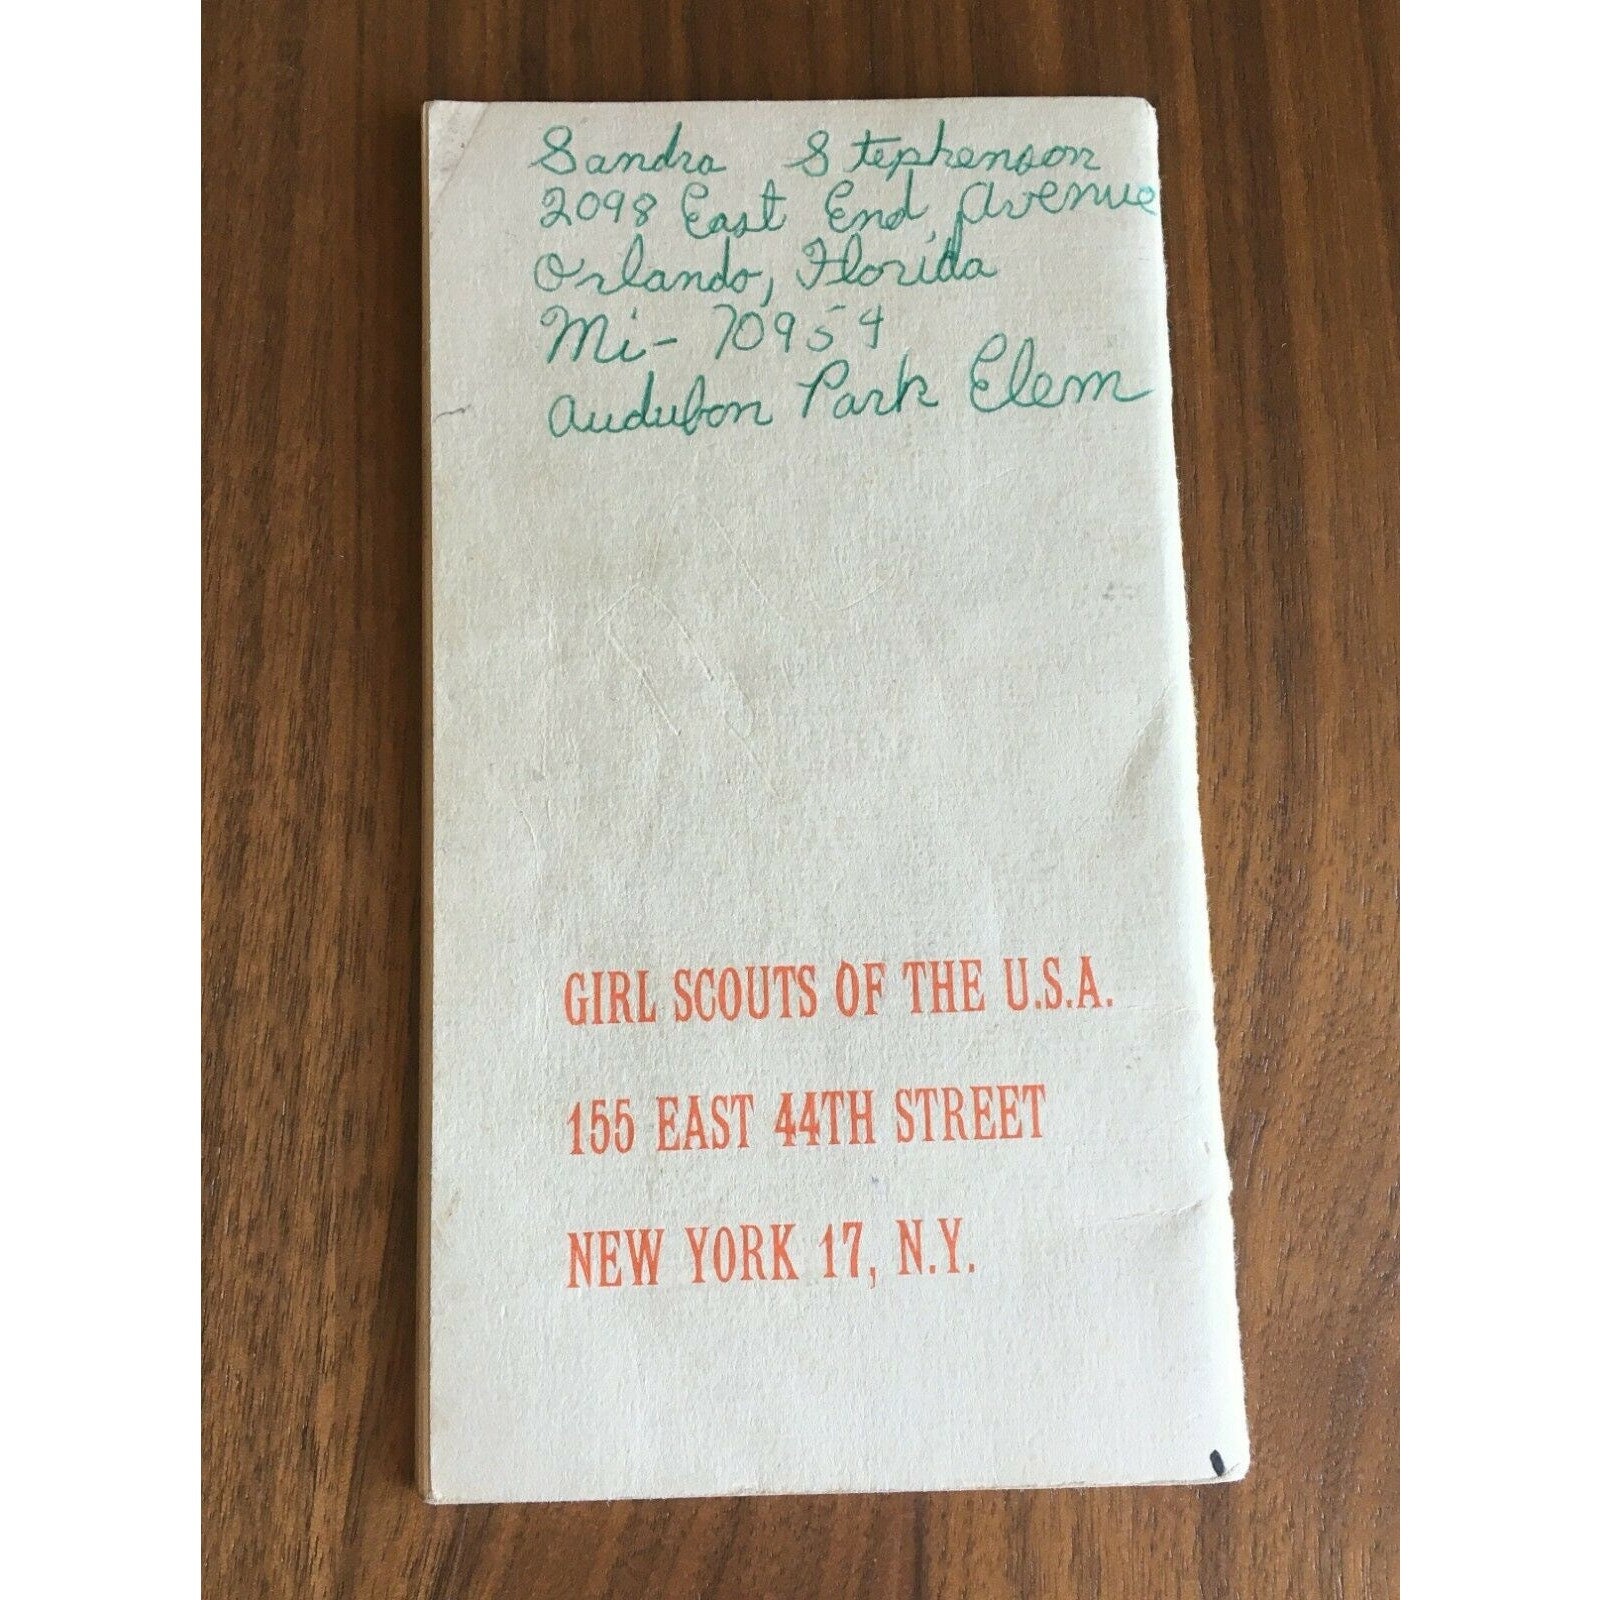 Sandra Stephenson
2098 East End Avenue
Orlando, Florida
Mi- 70954
Audubon Park Elem
GIRL SCOUTS OF THE U.S.A.
155 EAST 44TH STREET
NEW YORK 17, N.Y.